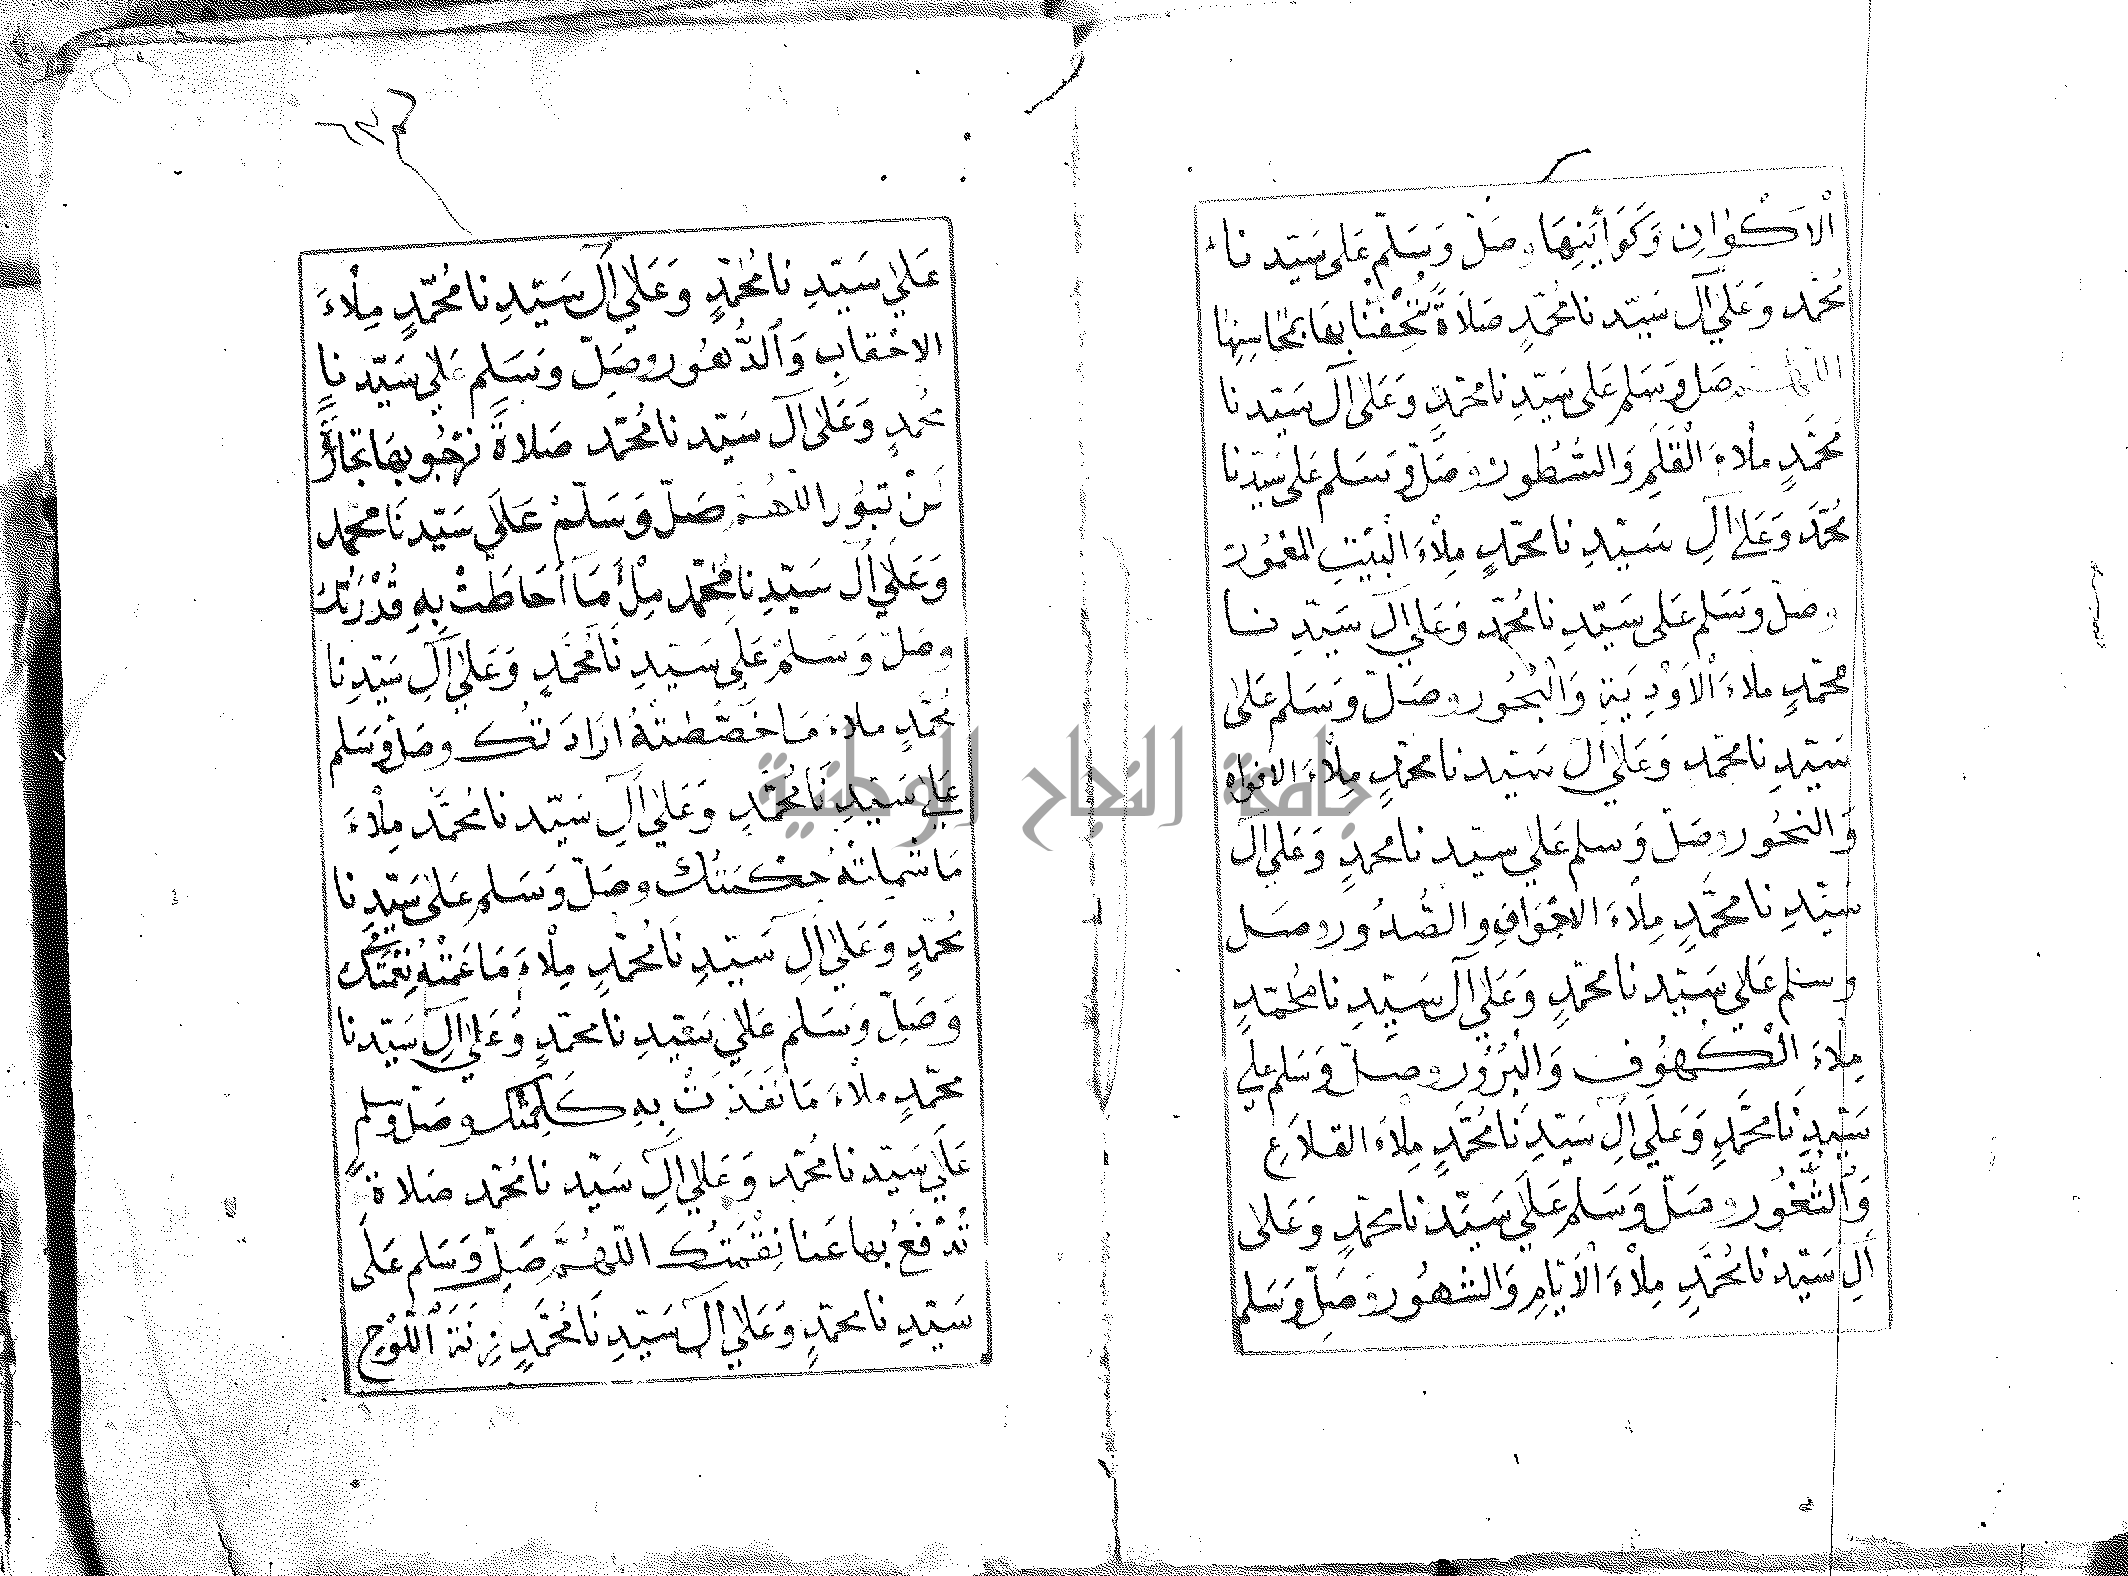 اْلاَكْوانِ وَكَوَآئِنِهَا وصَلّ وَسَلّم عَلى سَيّدِ نا
مُحَمّد وَعَلىٰ آلِ سَيّدِ نا مُحَمّدٍ صَلاَةً تُتْحِفُنا بهَا بمَحَاسِنِهَا
اللّٰهم صَلِّ وَسَلم عَلى سَيّدِ نا محمّدٍ وَعَلى آل سَيّدِ نا
مُحَمَّدٍ ملاءَ الْقَلَمِ وَالسُّطُور وصَلِّ وَسَلم عَلى سَيّدِ نا
مُحَمَّد وَعَلىٰ آلِ سَيّدِ نا محَمّدٍ مِلْاءَ الْبَيْتِ المعْمُور
وصَلّ وَسَلم عَلى سَيّدِ نا مُحَمّد وَعَلىٰ آلِ سَيّدِ نا
محَمّدٍ ملاءَ اْلاَوْدِيَةِ وَالْبُحُور وصَلّ وَسَلم عَلىٰ
سَيّدِ نا محَمّد وَعَلىٰ آلِ سَيّد نا محمّدٍ مِلْاءَ الافواه
وَالنحُور وصَلّ وَسلم عَلىٰ سيّد نا محمدٍ وَعَلىٰ آل
سَيّدِ نا محَمَّدٍ مِلاَءَ الاجْوَافِ والصُّدُور وصَل
وسَلم عَلىٰ سَيّد نا محَمّدٍ وَعَلىٰ آلِ سَيِّدِ نا مُحَمّدٍ
مِلاءَ الْكهُوُف وَالْبُرُورِ وصَلّ وَسَلم عَلىٰ
سَيّدِ نَا محَمَّدٍ وَعَلىٰ آلِ سَيّدِ نَا مُحَمَّدٍ مِلاءَ القلاَعِ
وَالثُّغُور وصَلّ وَسَلم عَلىٰ سَيّدِ نا محَمّدٍ وَعَلىٰ
آلِ سَيّدِ نا مُحَمَّدٍ مِلْاءَ الْاَيّامِ وَالشهُورِ وَصَلِّ وَسَلم
عَلىٰ سَيّدِ نا مُحَمَّدٍ وَعَلىٰ آل سَيّدِ نا مُحَمّدٍ مِلْاءَ
الاحْقابِ وَالدُّهُور وصَلِّ وَسَلم عَلىٰ سَيّدِ نا
مُحَمدٍ وَعَلىٰ آل سَيّد نا مُحَمّد صَلاةً نَرْجُو بهَا تجارَةً
لَنْ تَبُوَر اللّهُمَّ صَلّ وَسَلّمْ عَلىٰ سَيّدِ نَا محَمد
وَعَلىٰ آلِ سَيّدِ نا مُحَمّد مِلْءَ مَا أَحَاطَتْ بِهِ قُدْرَتُكَ
وصَلّ وَسَلمْ عَلىٰ سَيّدِ نَا مُحَمَّدٍ وَعَلىٰ آلِ سَيّدِ نا
مُحَمّدٍ ملاءَ مَا خَصَّصَتْهُ ارَادَ تُكَ وصَلّ وَسَلم
عَلىٰ سَيّدِ نَا مُحَمَّدٍ وَعَلىٰ آلِ سَيّد نا مُحَمَّد مِلْاءَ
مَا شملتْهُ حِكْمَتُكَ وصَلّ وَسَلم عَلىٰ سَيّدِ نا
مُحَمّدٍ وَعَلىٰ آلِ سَيّدِ نَا مُحَمّدٍ مِلْاءَ مَا عَمّتْهُ نِعْمَتُكَ
وَصَلّ وَسَلم عَلىٰ سَيّدِ نا محَمّدٍ وَعَلىٰ آلِ سَيّدِ نا
محَمّدٍ ملْاءَ مَا نَفَذَتْ بِهِ كَلِمَتُكَ وصَلّ وَسلم
عَلىٰ سَيّد نا مُحَمّد وَعَلىٰ آلِ سَيّد نا مُحَمّد صَلاةً
تُدْفَعُ بهَا عَنا نِقْمَتُكَ اللّهُمَّ صَلِّ وَسَلم عَلىٰ
سَيّدِ نا محَمّدٍ وَعَلىٰ آلِ سَيّدِ نَا مُحَمَّدٍ زِنَةَ اللّوْحِ
جامعة النجاح الوطنية